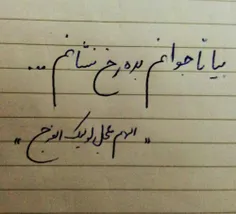 بیا تا جوانم بده رخ نشانم ...
"اللهم عجل لولیک الفرج"